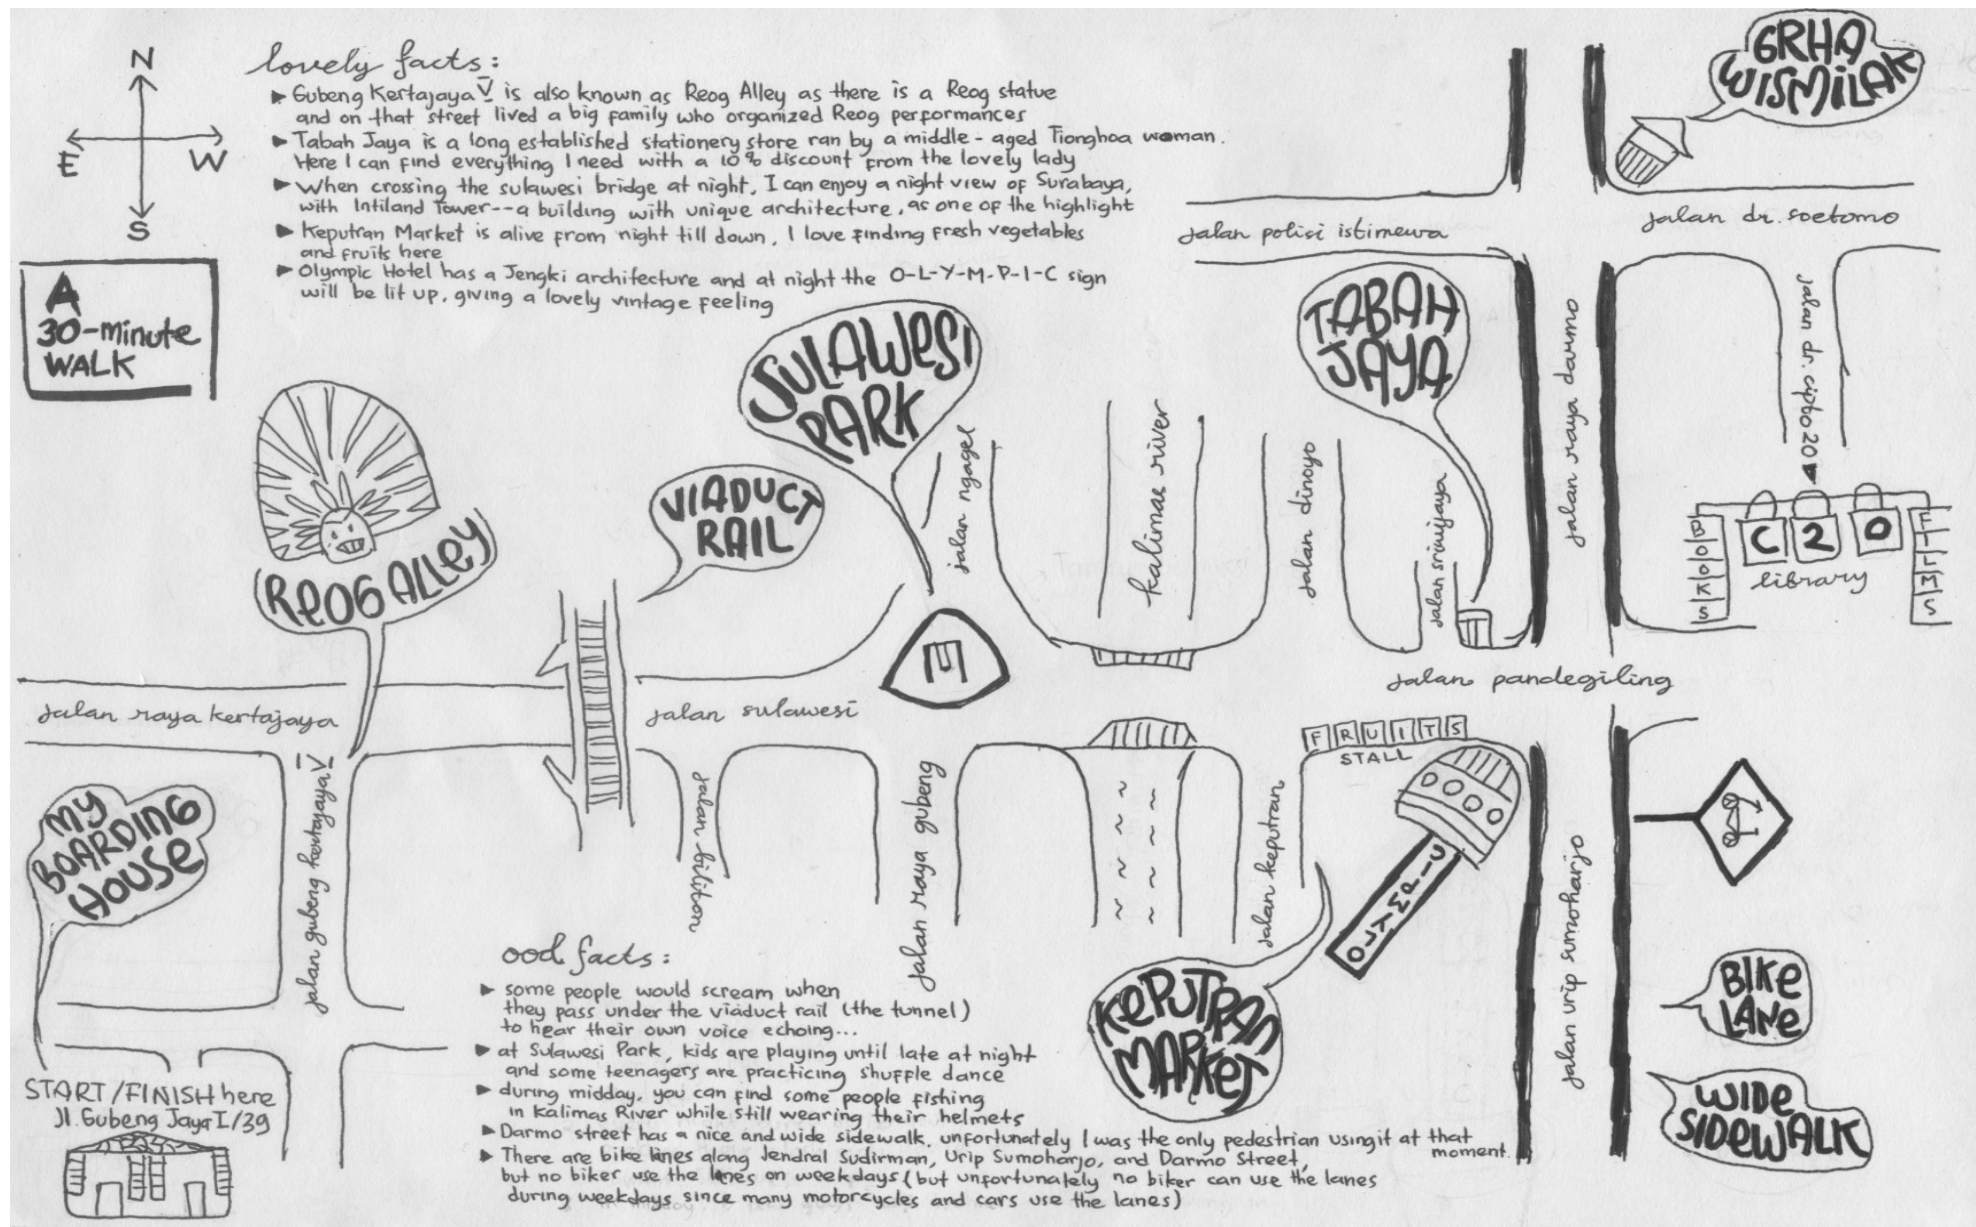 N
E
W
S
lovely facts:
► Gubeng Kertajaya V is also known as Reog Alley as there is a Reog statue
and on that street lived a big family who organized Reog performances
► Tabah Jaya is a long established stationery store ran by a middle-aged Tionghoa woman.
Here I can find everything I need with a 10% discount from the lovely lady
► When crossing the sulawesi bridge at night, I can enjoy a night view of Surabaya,
with Intiland Tower--a building with unique architecture, as one of the highlight
► Keputran Market is alive from night till down, I love finding fresh vegetables
and fruits here
► Olympic Hotel has a Jengki architecture and at night the O-L-Y-M-P-I-C sign
will be lit up, giving a lovely vintage feeling
A
30-minute
WALK
GRHA
WISMILAK
jalan polisi istimewa
jalan dr. soetomo
TABAH
JAYA
jalan raya darmo
jalan dr. cipto 20
SULAWESI
PARK
jalan ngagel
kalimas river
jalan dinoyo
jalan sriwijaya
BOOKS
C2O
FILMS
library
VIADUCT
RAIL
REOG ALLEY
jalan raya kertajaya
jalan sulawesi
jalan pandegiling
FRUITS
STALL
OLYMPIC
MY
BOARDING
HOUSE
jalan gubeng kertajaya V
jalan biliton
jalan raya gubeng
jalan keputran
jalan urip sumoharjo
KEPUTRAN
MARKET
BIKE
LANE
WIDE
SIDEWALK
START/FINISH here
Jl. Gubeng Jaya I/39
ood facts:
► some people would scream when
they pass under the viaduct rail (the tunnel)
to hear their own voice echoing...
► at Sulawesi Park, kids are playing until late at night
and some teenagers are practicing shuffle dance
► during midday, you can find some people fishing
in Kalimas River while still wearing their helmets
► Darmo street has a nice and wide sidewalk, unfortunately I was the only pedestrian using it at that
moment.
► There are bike lanes along Jendral Sudirman, Urip Sumoharjo, and Darmo Street,
but no biker use the lanes on weekdays (but unfortunately no biker can use the lanes
during weekdays since many motorcycles and cars use the lanes)